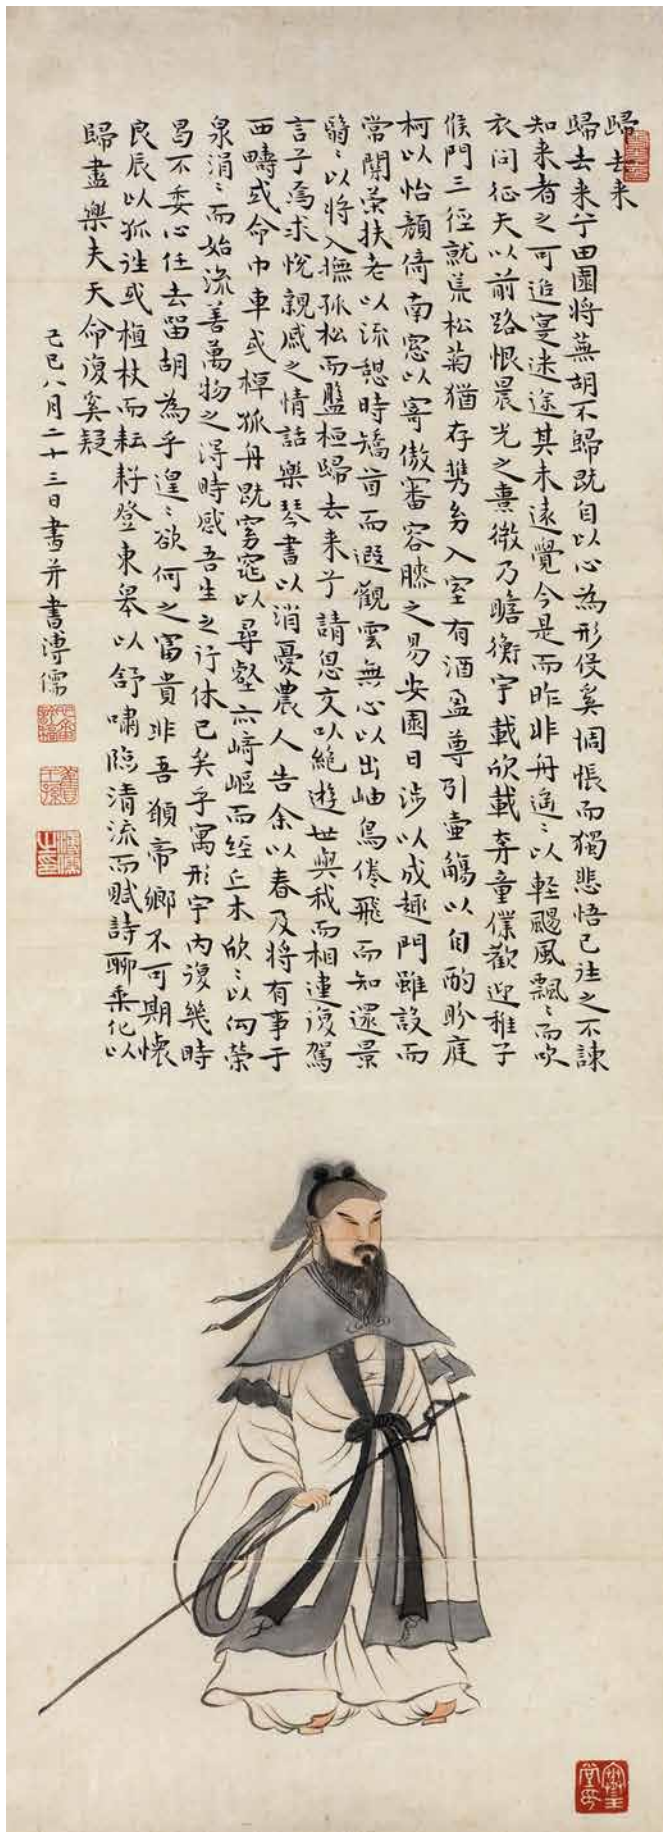 歸去来
歸去来兮田園將蕪胡不歸既自以心為形役奚惆悵而獨悲悟已往之不諫
知来者之可追寔迷途其未遠覺今是而昨非舟遥〻以輕颺風飄〻而吹
衣問征夫以前路恨晨光之熹微乃瞻衡宇載欣載奔童僕歡迎稚子
候門三徑就荒松菊猶存携幼入室有酒盈尊引壷觴以自酌眄庭
柯以怡顔倚南窓以寄傲審容膝之易安園日涉以成趣門雖設而
常關策扶老以流憩時矯首而遐觀雲無心以出岫鳥倦飛而知還景
翳〻以將入撫孤松而盤桓歸去来兮請息交以絶遊世與我而相違復駕
言兮焉求悅親戚之情話樂琴書以消憂農人告余以春及將有事于
西疇或命巾車或棹孤舟既窈窕以尋壑亦崎嶇而經丘木欣〻以向榮
泉涓〻而始流善萬物之得時感吾生之行休已矣乎寓形宇内復幾時
曷不委心任去留胡為乎遑〻欲何之富貴非吾願帝鄉不可期懷
良辰以孤往或植杖而耘耔登東皋以舒嘯臨清流而賦詩聊乘化以
歸盡樂夫天命復奚疑
己巳八月二十三日書并書溥儒